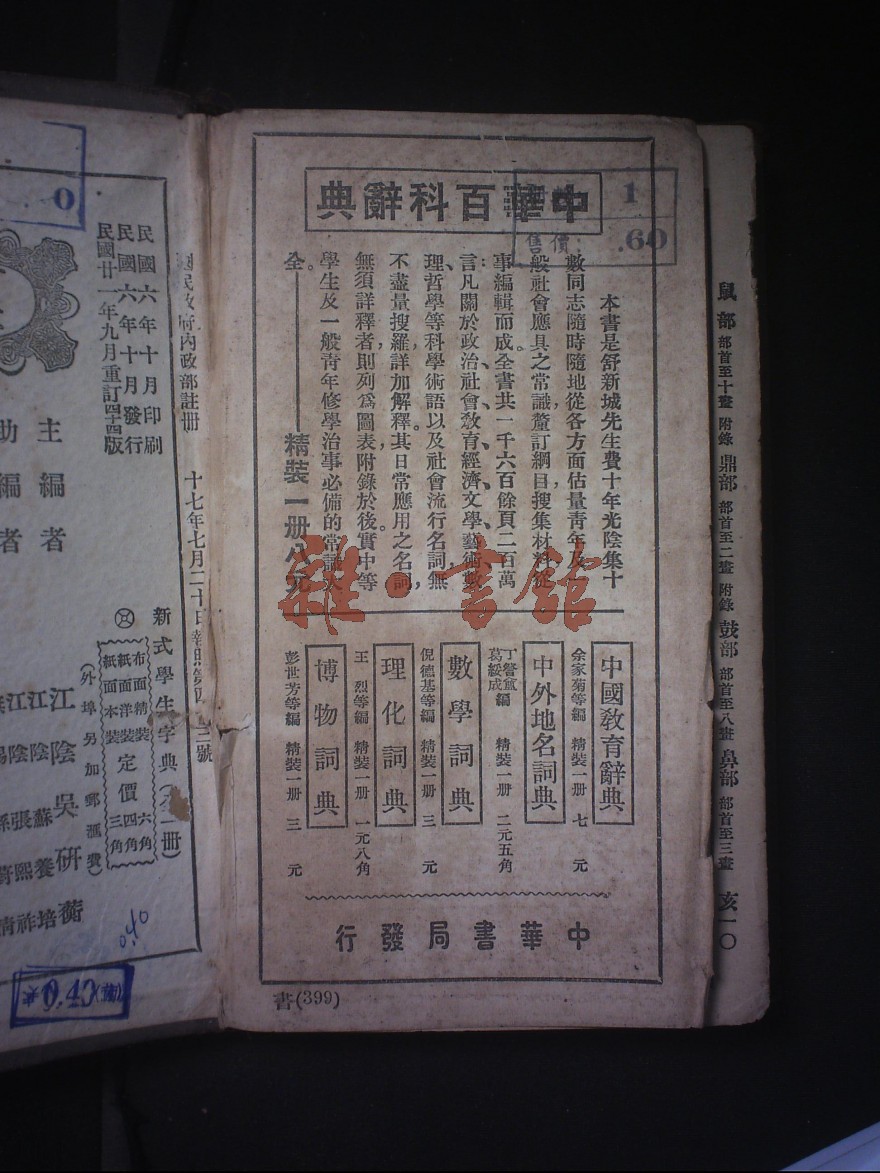 中華百科辭典
1
售價 .60
本書是舒新城先生費十年光陰集十
數同志隨時隨地從各方面估量靑年及一
般社會應具之常識釐訂綱目搜集材料從
事編輯而成。全書共一千六百餘頁二百萬
言凡關於政治、社會、敎育、經濟、文學、藝術、數
理、哲學等科學術語以及社會流行名詞,無
不盡量搜羅,詳加解釋。其日常應用之名詞,
無須詳釋者,則列爲圖表,附錄於後。實中等
學生及一般靑年修學治事必備的常識大
全。——精裝一册八元
中國敎育辭典
余家菊等編 精裝一册 七元
中外地名詞典
丁詧盦
葛綏成編 精裝一册 二元五角
數學詞典
倪德基等編 精裝一册 三元
理化詞典
王烈等編 精裝一册 一元八角
博物詞典
彭世芳等編 精裝一册 三元
中華書局發行
書(399)
雜·書館
鼠部 部首至十畫 附錄 鼎部 部首至二畫 附錄 鼓部 部首至八畫 鼻部 部首至三畫 亥一〇
民政府內政部註册 十七年七月二十日 執照第四
三號
民國六年十月印刷
民國六年十月發行
民國廿一年九月重訂四十四版
新式學生字典(全一册)
布面精裝 六角
紙面洋裝 定價 四角
紙面本裝 三角
(外埠另加郵滙費)
主編者 江陰吳研蘅
助編者 江陰蘇養培
江陰張熙祚
0
0.40
0.40